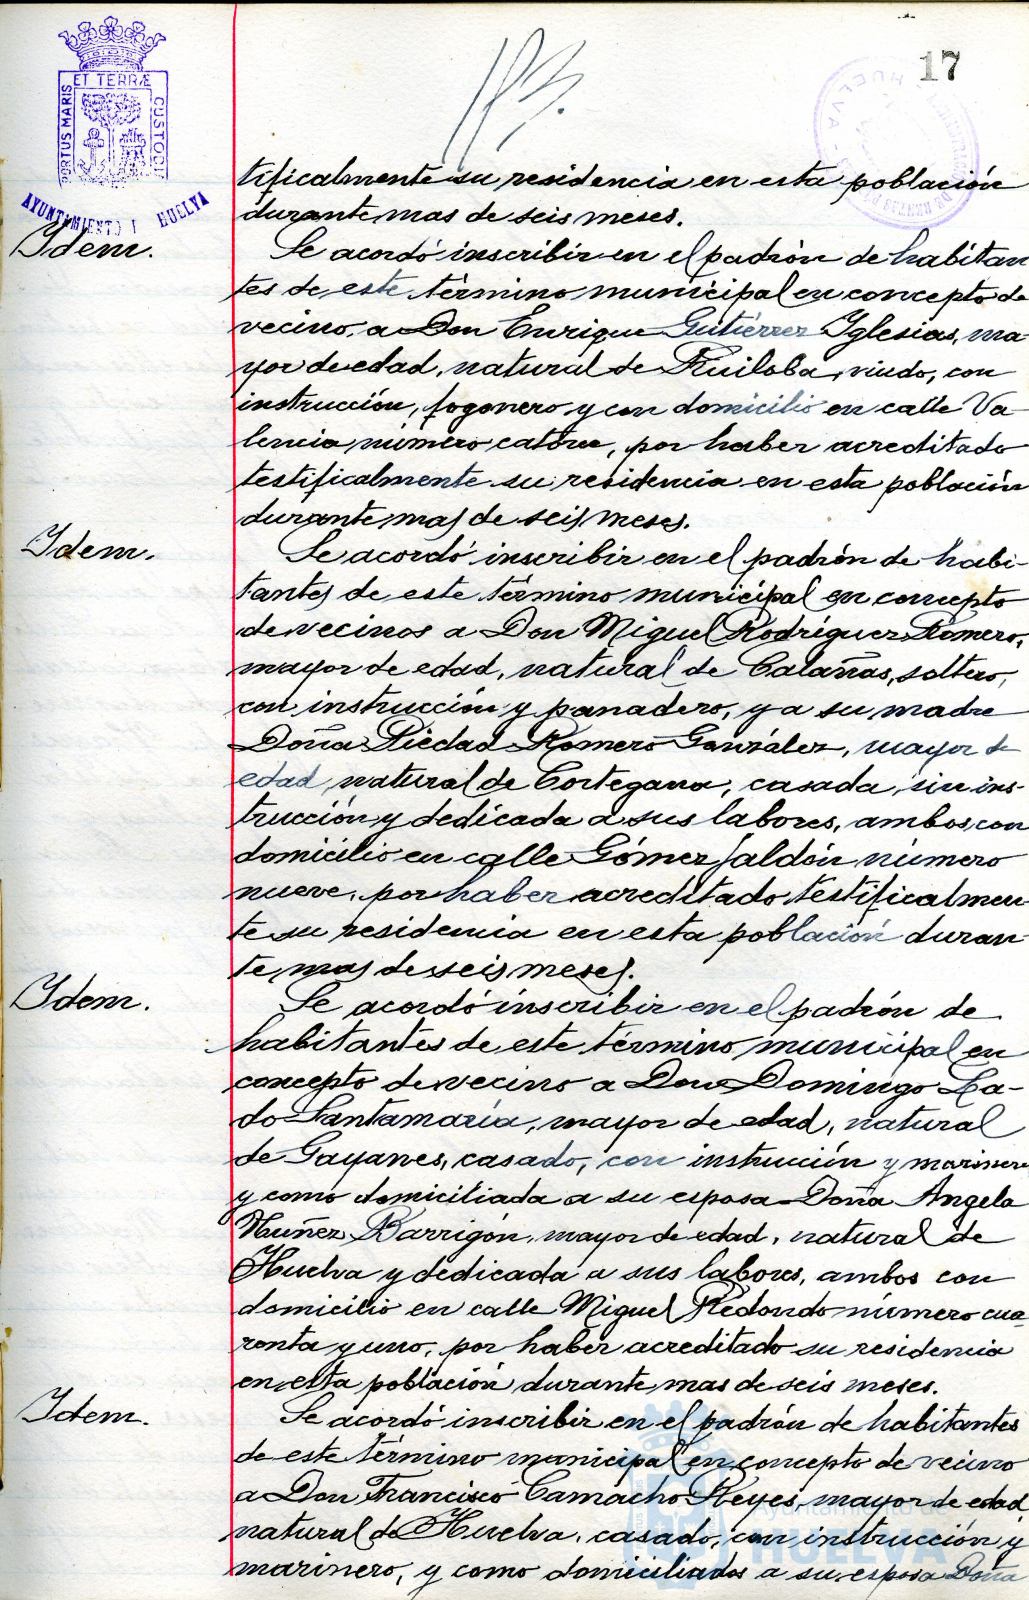 17
113.
ET TERRÆ
PORTUS MARIS
CUSTODIA
AYUNTAMIENTO HUELVA
tificalmente su residencia en esta población
durante mas de seis meses.
Idem.
Se acordó inscribir en el padrón de habitan
tes de este término municipal en concepto de
vecino a Don Enrique Gutiérrez Iglesias, ma-
yor de edad, natural de Ruiloba, viudo, con
instrucción, fogonero y con domicilio en calle Va-
lencia número catorce, por haber acreditado
testificalmente su residencia en esta población
durante mas de seis meses.
Idem.
Se acordó inscribir en el padrón de habi-
tantes de este término municipal en concepto
de vecinos a Don Miguel Rodríguez Romero,
mayor de edad, natural de Calañas, soltero,
con instrucción y panadero, y a su madre
Doña Piedad Romero González, mayor de
edad, natural de Cortegana, casada, sin ins-
trucción y dedicada a sus labores, ambos con
domicilio en calle Gómez Jaldón número
nueve, por haber acreditado testificalmen-
te su residencia en esta población duran-
te mas de seis meses.
Idem.
Se acordó inscribir en el padrón de
habitantes de este término municipal en
concepto de vecino a Don Domingo La-
do Santamaría, mayor de edad, natural
de Gayanes, casado, con instrucción y marinero
y como domiciliada a su esposa Doña Angela
Nuñez Barrigón, mayor de edad, natural de
Huelva y dedicada a sus labores, ambos con
domicilio en calle Miguel Redondo número cua-
renta y uno, por haber acreditado su residencia
en esta población durante mas de seis meses.
Idem.
Se acordó inscribir en el padrón de habitantes
de este término municipal en concepto de vecino
a Don Francisco Camacho Reyes, mayor de edad
natural de Huelva, casado, con instrucción y
marinero, y como domiciliados a su esposa Doña
Ayuntamiento de
HUELVA